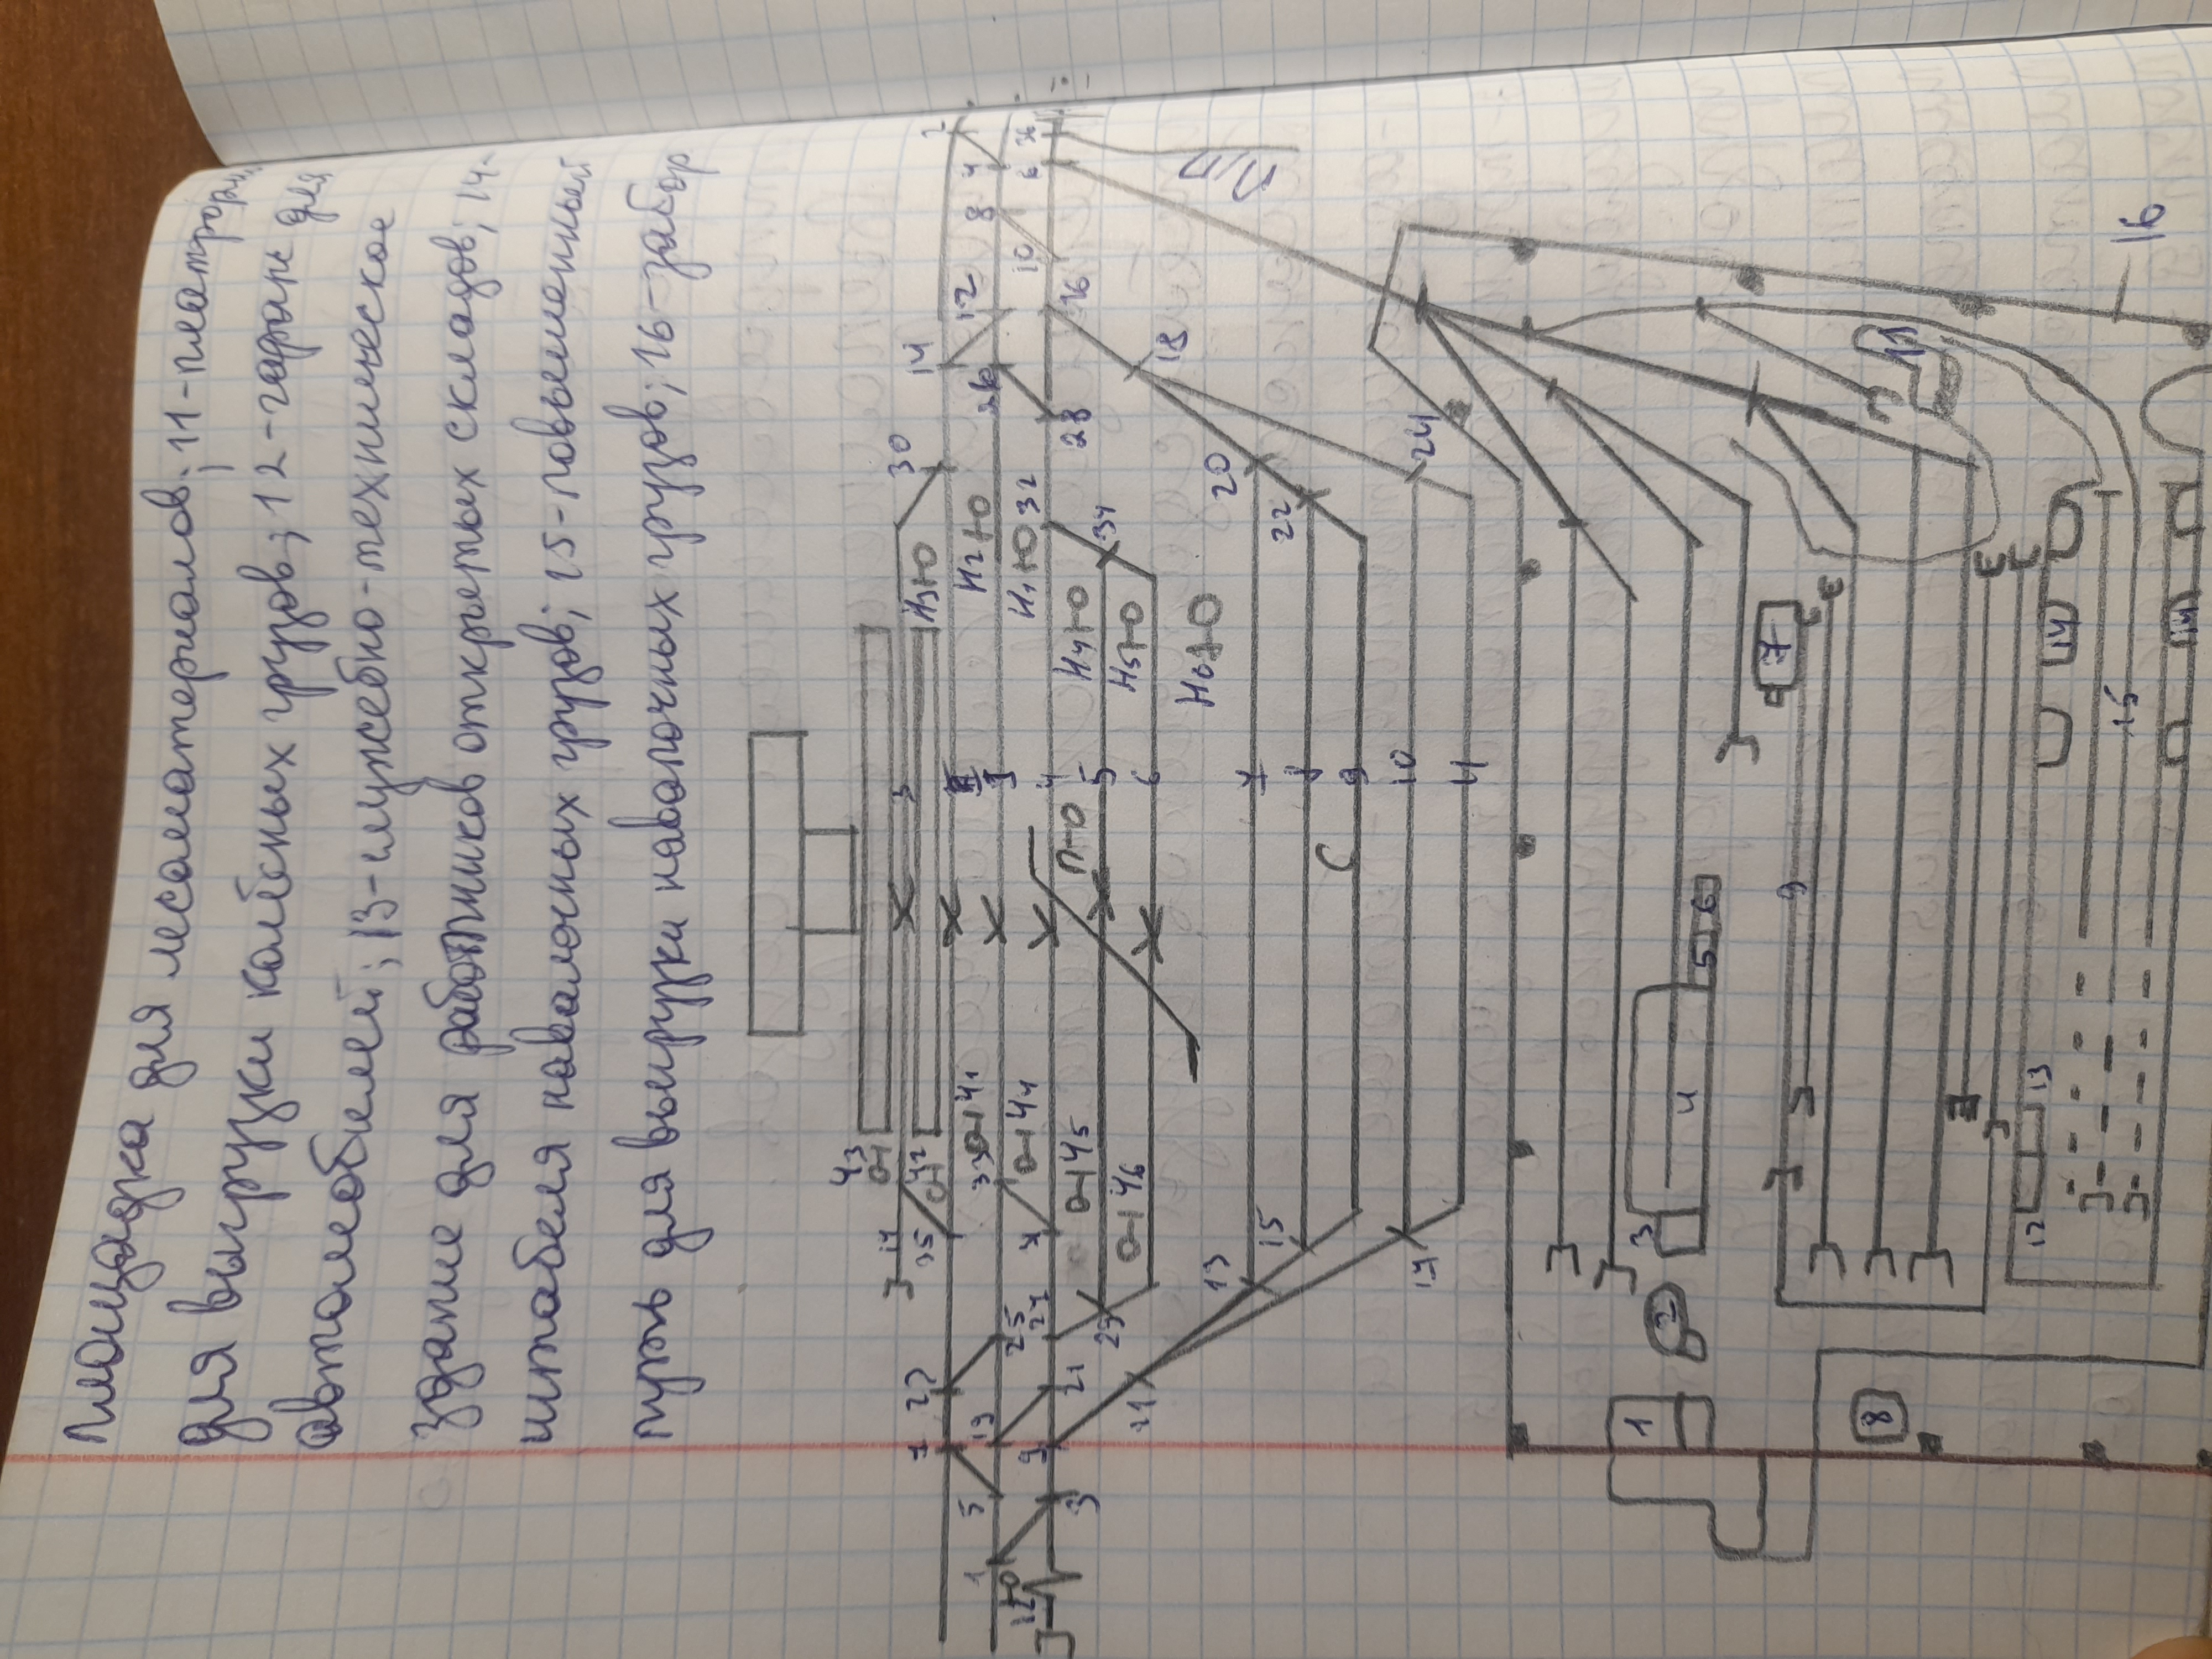 площадка для лесоматериалов; 11-платформа
для выгрузки колёсных грузов; 12-гараж для
автомобилей; 13-служебно-техническое
здание для работников открытых складов; 14-
штабеля навалочных грузов; 15-повышенный
путь для выгрузки навалочных грузов; 16-забор
2
4
6
36
8
10
12
14
16
18
28
30
Н3
Н2
Н1
32
34
Н4
Н5
Н6
20
22
24
3
II
I
4
5
6
7
8
9
10
11
П-0
С
Ч3
Ч2
Ч1
Ч4
Ч5
Ч6
33
35
17
13
15
25
27
29
21
19
7
9
5
3
1
11
1
2
3
4
5
6
7
8
9
11
12
13
14
14
15
16